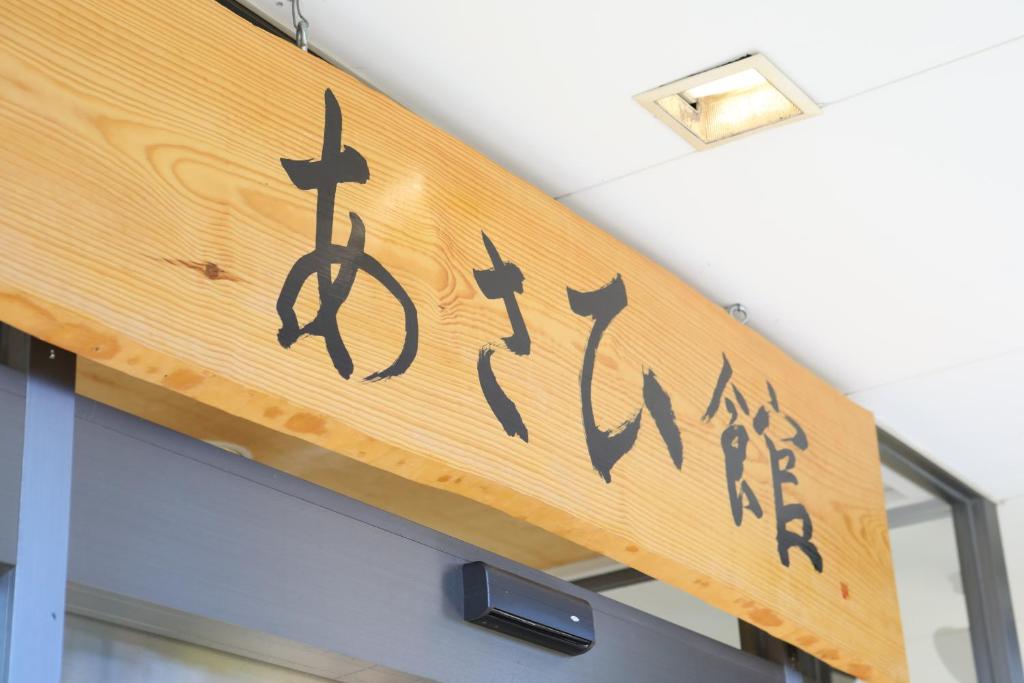 あさひ館